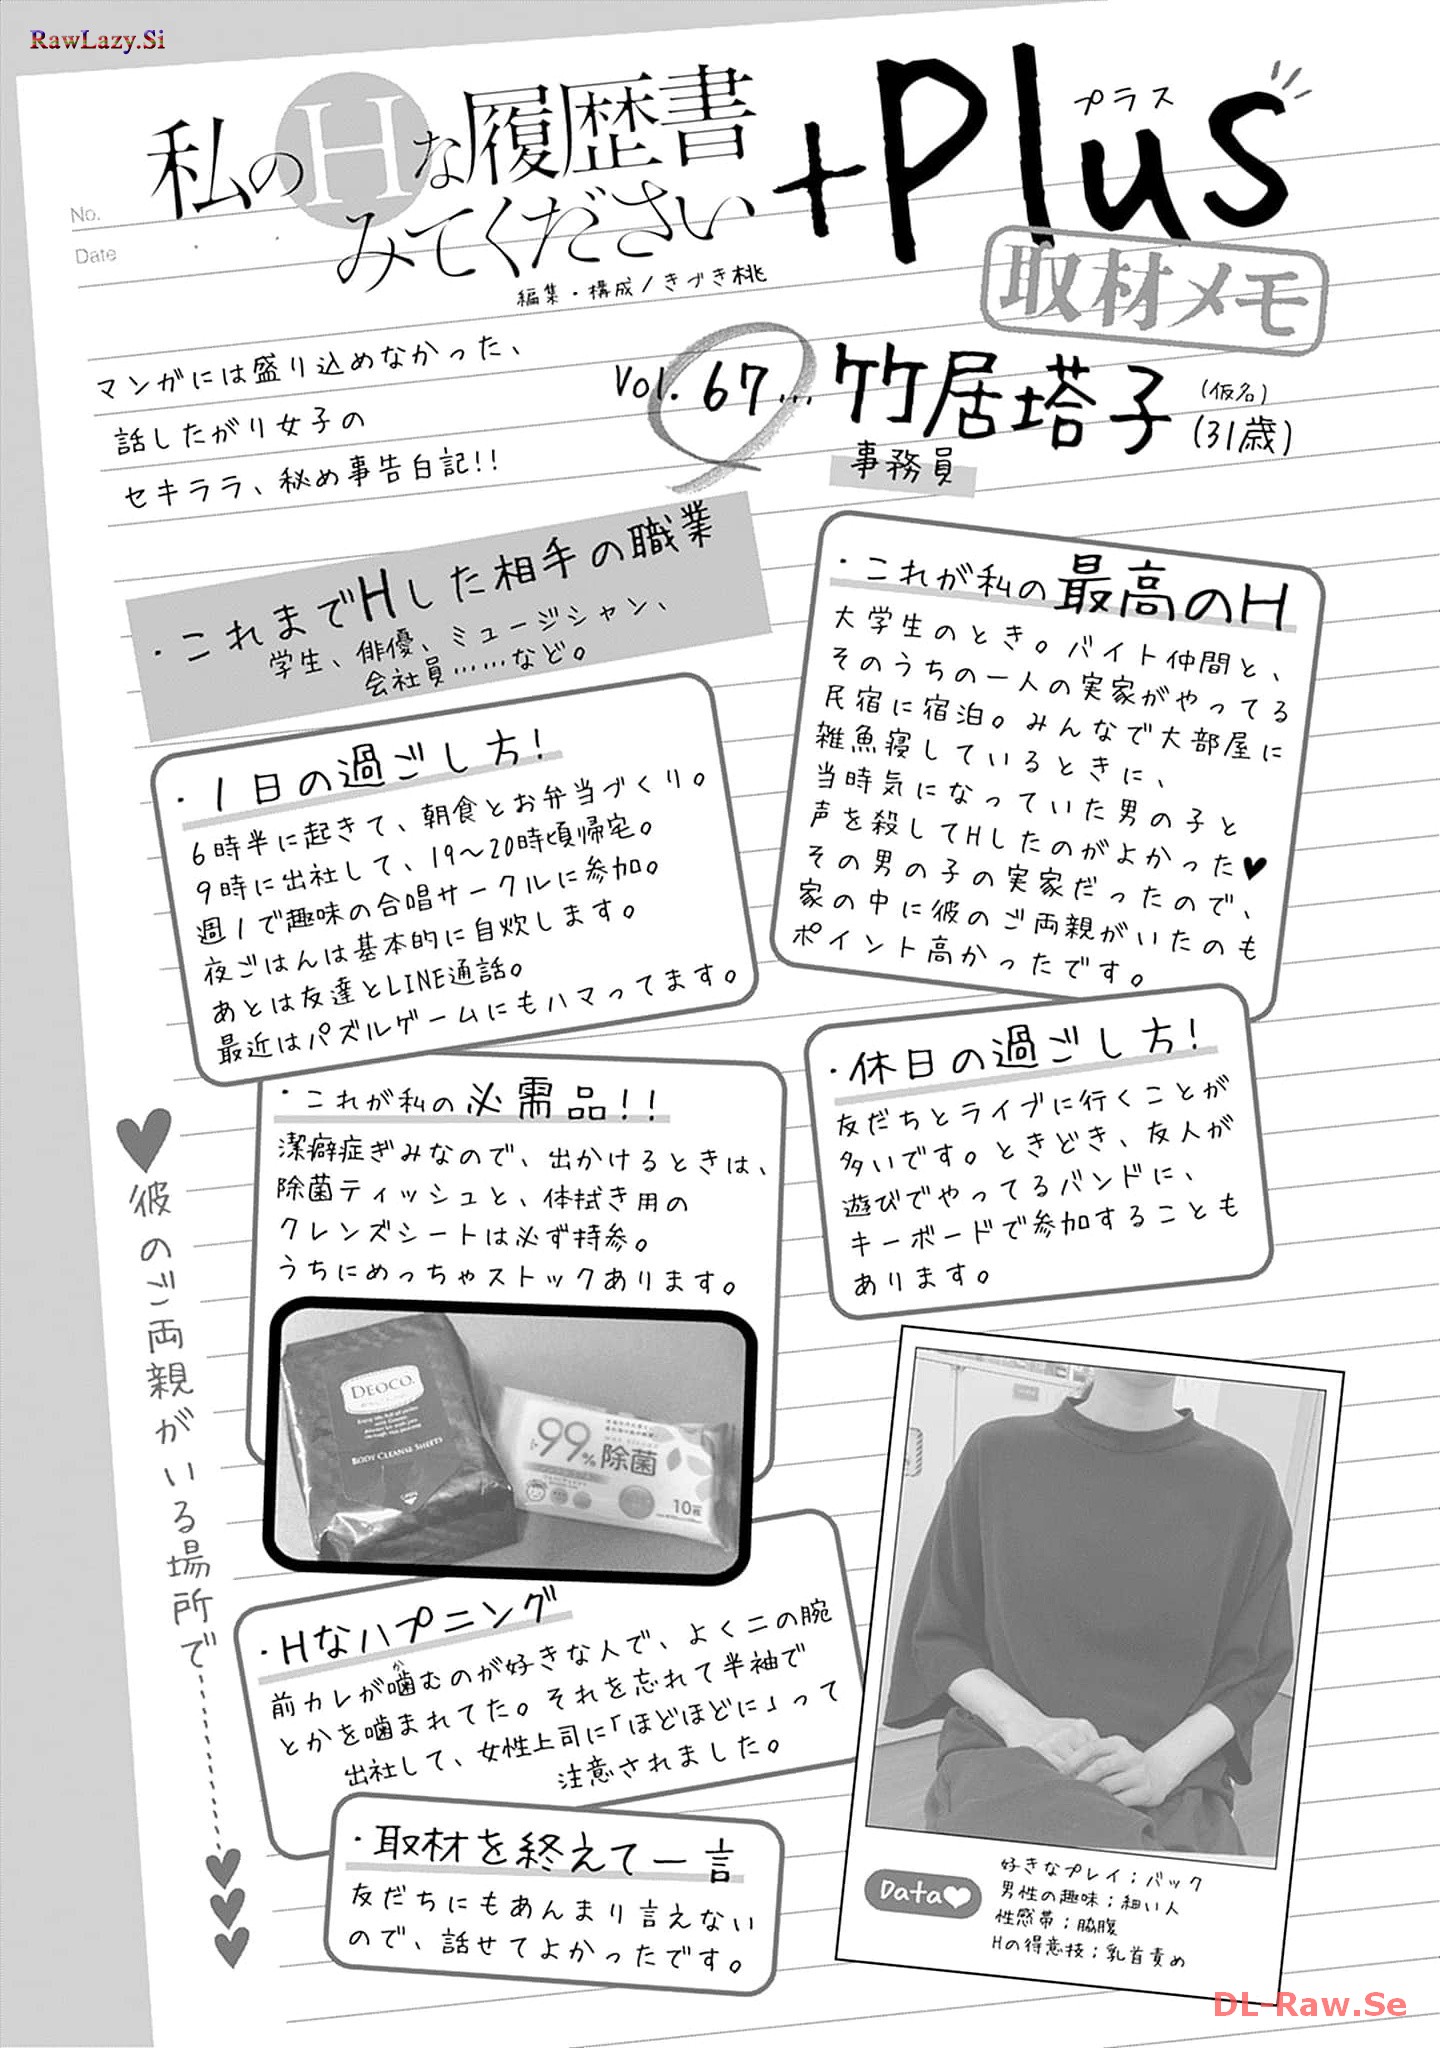 RawLazy.Si
No.
Date
私のHな履歴書
みてください
+Plus
プラス
編集・構成/きづき桃
取材メモ
マンガには盛り込めなかった、
話したがり女子の
セキララ、秘め事告白記!!
Vol.67…竹居塔子(仮名)(31歳)
事務員
・これまでHした相手の職業
学生、俳優、ミュージシャン、
会社員……など。
・これが私の最高のH
大学生のとき。バイト仲間と、
そのうちの一人の実家がやってる
民宿に宿泊。みんなで大部屋に
雑魚寝しているときに、
当時気になっていた男の子と
声を殺してHしたのがよかった♥
その男の子の実家だったので、
家の中に彼のご両親がいたのも
ポイント高かったです。
・1日の過ごし方!
6時半に起きて、朝食とお弁当づくり。
9時に出社して、19〜20時頃帰宅。
週1で趣味の合唱サークルに参加。
夜ごはんは基本的に自炊します。
あとは友達とLINE通話。
最近はパズルゲームにもハマってます。
・休日の過ごし方!
友だちとライブに行くことが
多いです。ときどき、友人が
遊びでやってるバンドに、
キーボードで参加することも
あります。
・これが私の必需品!!
潔癖症ぎみなので、出かけるときは、
除菌ティッシュと、体拭き用の
クレンズシートは必ず持参。
うちにめっちゃストックあります。
DEOCO.
BODY CLEANSE SHEETS
99%除菌
10枚
♥彼のご両親がいる場所で
・Hなハプニング
前カレが噛むのが好きな人で、よく二の腕
か
とかを噛まれてた。それを忘れて半袖で
出社して、女性上司に「ほどほどに」って
注意されました。
・取材を終えて一言
友だちにもあんまり言えない
ので、話せてよかったです。
Data♥
好きなプレイ;バック
男性の趣味;細い人
性感帯;脇腹
Hの得意技;乳首責め
DL-Raw.Se